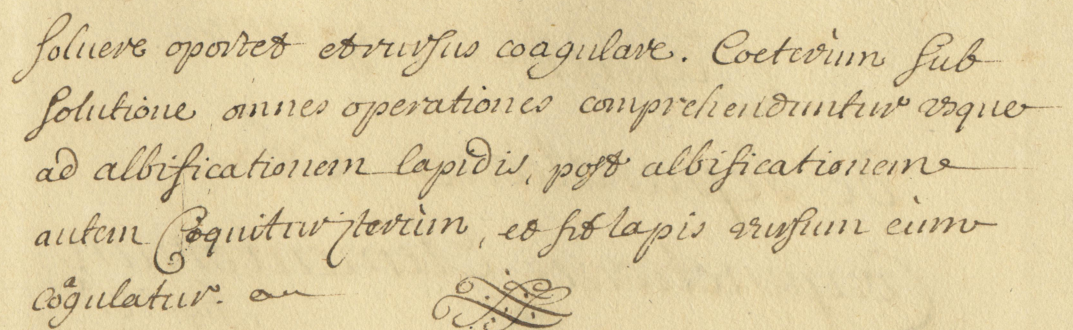 soluere oportet et rursus coagulare. Coeterùm sub
solutione omnes operationes comprehenduntur usque
ad albificationem lapidis, post albificationem
autem Coquitur jterùm, et fit lapis rursum cùm
coagulatur.